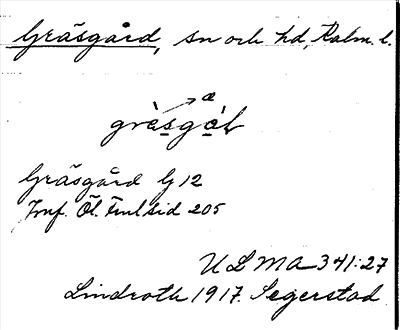 Gräsgård, sn och hd, Kalm. l.
a
gràsgàḷ
Gräsgård G 12
Jmf. Öl. Fmlsid 205
ULMA 341:27
Lindroth 1917. Segerstad